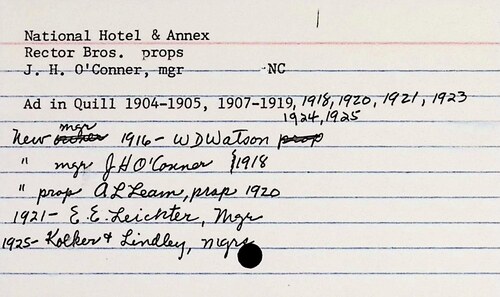 National Hotel & Annex
Rector Bros. props
J. H. O'Conner, mgr -NC
Ad in Quill 1904-1905, 1907-1919, 1918, 1920, 1921, 1923
1924, 1925
New mgr 1916- W D Watson prop
" mgr J H O'Conner } 1918
" prop A L Leam, prop 1920
1921- E. E. Leichter, Mgr
1925- Kolker & Lindley, mgrs